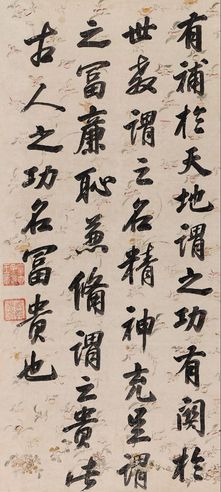 有補於天地謂之功有関於
世教謂之名精神充足謂
之冨廉恥兼備謂之貴此
古人之功名冨貴也